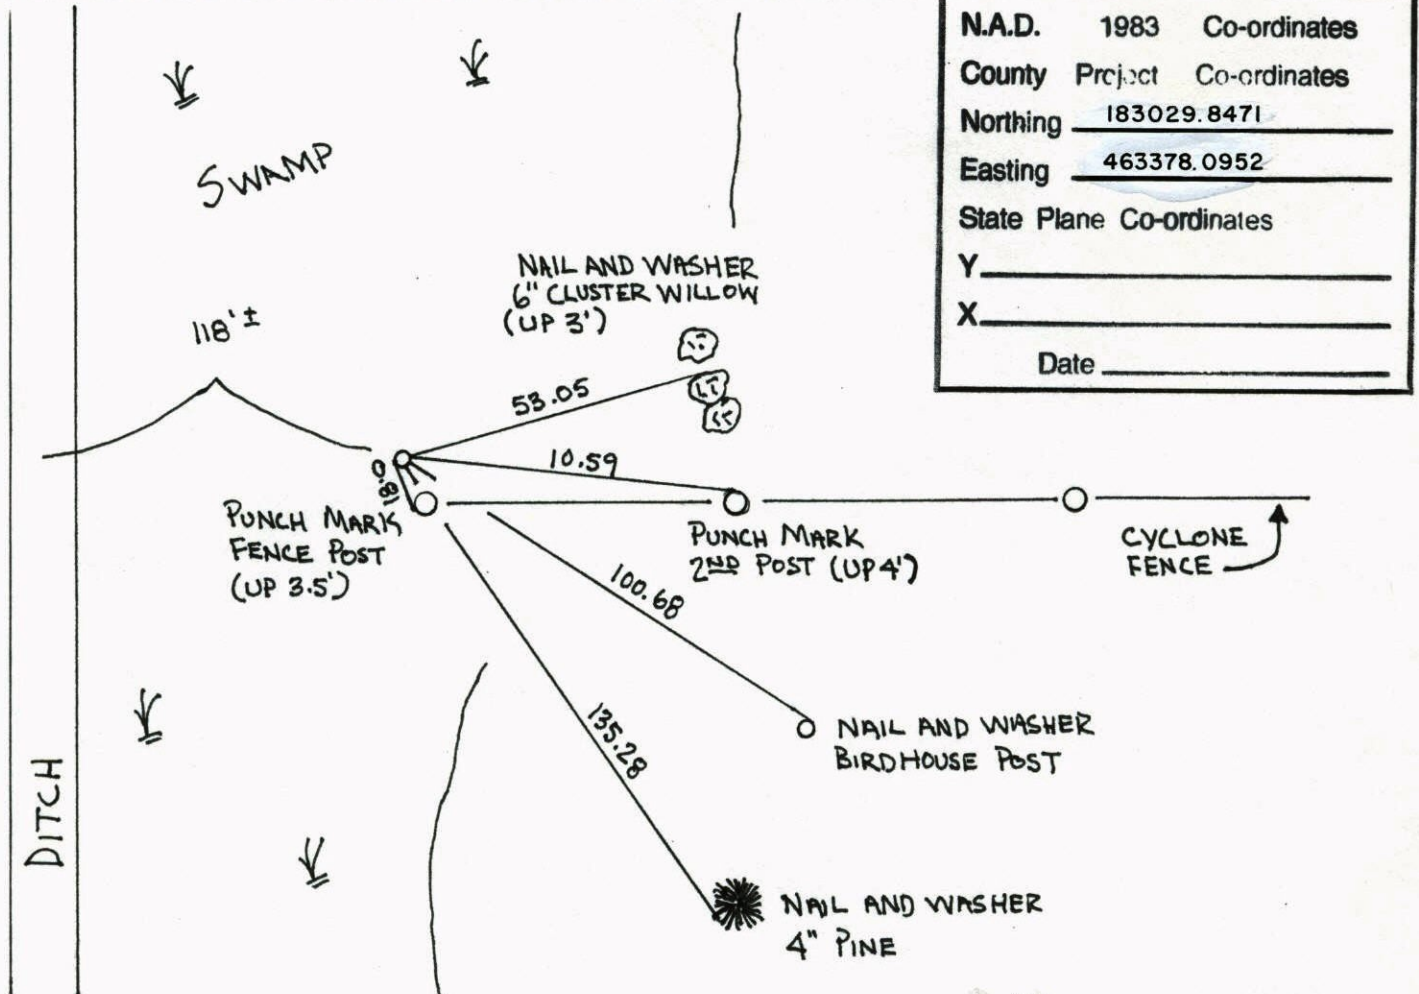 N.A.D. 1983 Co-ordinates
County Project Co-ordinates
Northing 183029.8471
Easting 463378.0952
State Plane Co-ordinates
Y
X
Date
SWAMP
NAIL AND WASHER
6" CLUSTER WILLOW
(UP 3')
118'±
53.05
10.59
0.81
PUNCH MARK
FENCE POST
(UP 3.5')
PUNCH MARK
2ND POST (UP 4')
CYCLONE
FENCE
100.68
135.28
NAIL AND WASHER
BIRDHOUSE POST
DITCH
NAIL AND WASHER
4" PINE